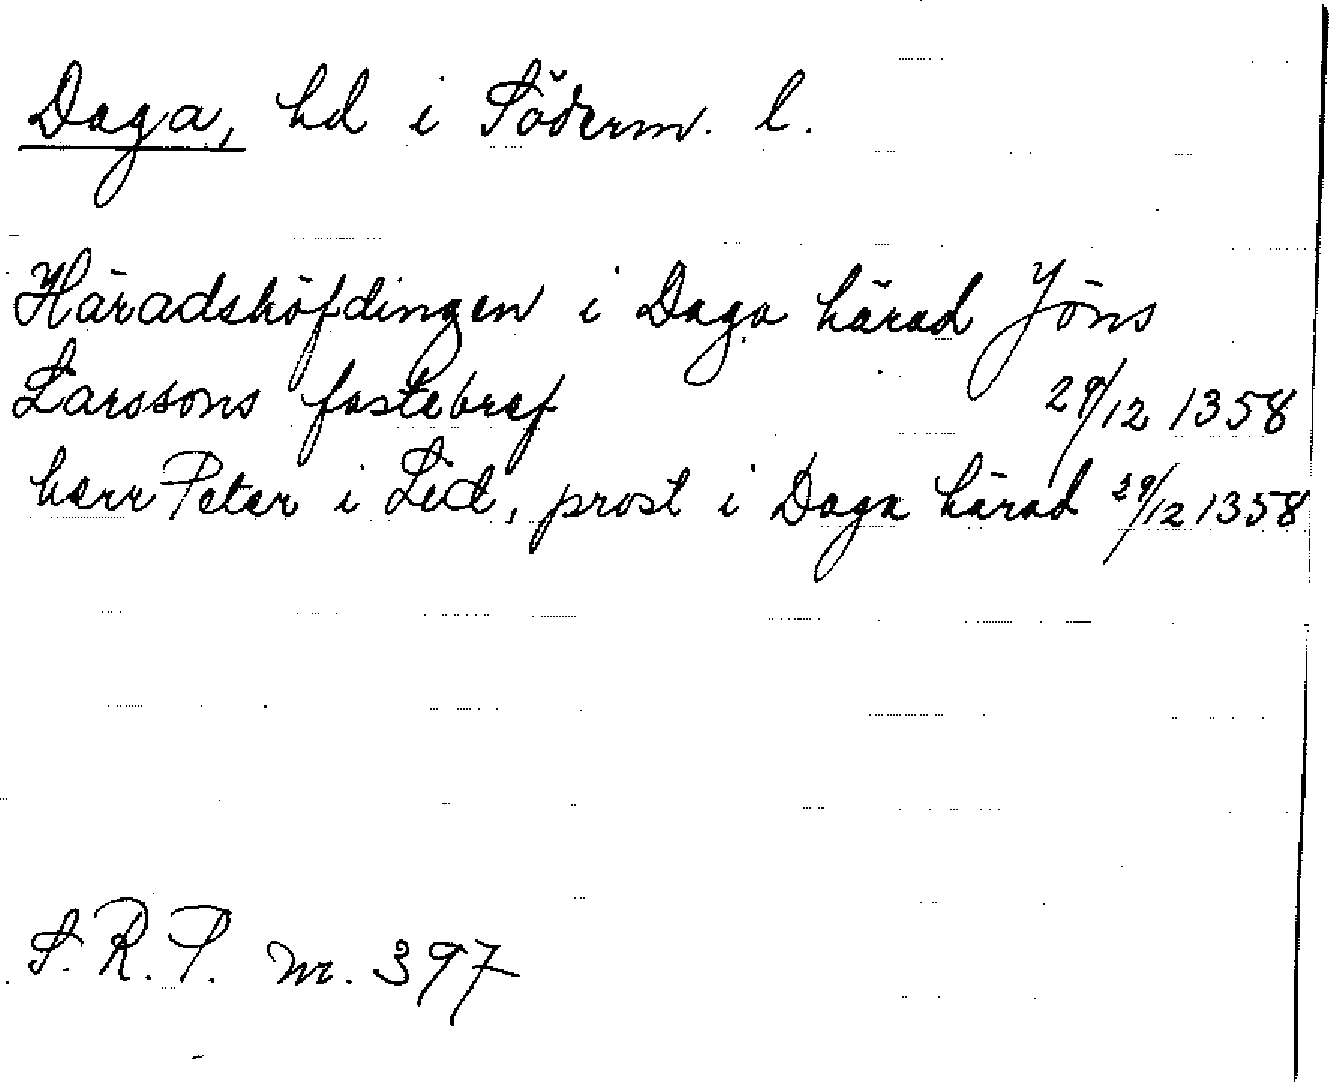 Daga, hd i Söderm. l.
Häradshöfdingen i Daga härad Jöns
Larssons fastebref 29/12 1358
herr Peter i Lid, prost i Daga härad 29/12 1358
S. R. P. nr. 397